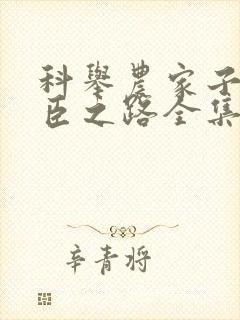 科举农家子
臣之路全集
辛青将